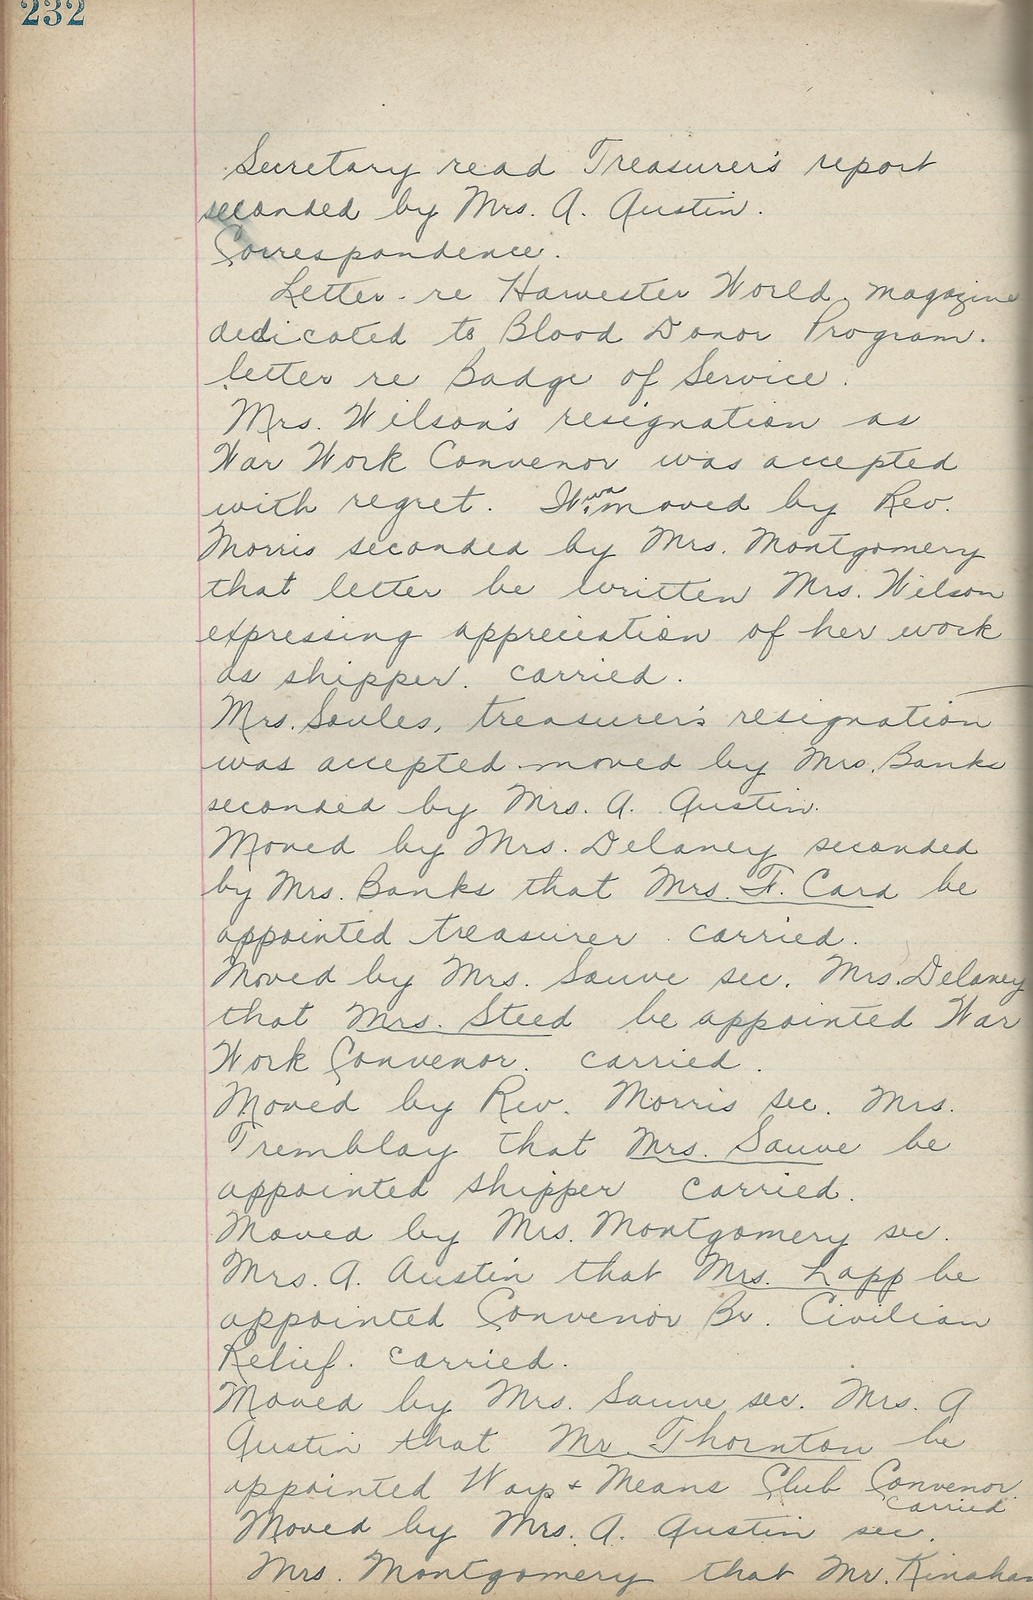 232
Secretary read Treasurer's report
seconded by Mrs. A. Austin.
Correspondence.
Letter re Harvester World magazine
dedicated to Blood Donor Program.
letter re Badge of Service.
Mrs. Wilson's resignation as
War Work Convenor was accepted
with regret. It was moved by Rev.
Morris seconded by Mrs. Montgomery
that letter be written Mrs. Wilson
expressing appreciation of her work
as shipper. carried.
Mrs. Soules, treasurer's resignation
was accepted moved by Mrs. Banks
seconded by Mrs. A. Austin.
Moved by Mrs. Delaney seconded
by Mrs. Banks that Mrs. F. Card be
appointed treasurer. carried.
Moved by Mrs. Sauve sec. Mrs. Delaney
that Mrs. Steed be appointed War
Work Convenor. carried.
Moved by Rev. Morris sec. Mrs.
Tremblay that Mrs. Sauve be
appointed shipper carried.
Moved by Mrs. Montgomery sec.
Mrs. A. Austin that Mrs. Lapp be
appointed Convenor Br. Civilian
Relief. carried.
Moved by Mrs. Sauve sec. Mrs. A
Austin that Mr. Thornton be
appointed Ways + Means Club Convenor.
carried
Moved by Mrs. A. Austin sec.
Mrs. Montgomery that Mr. Kinahan